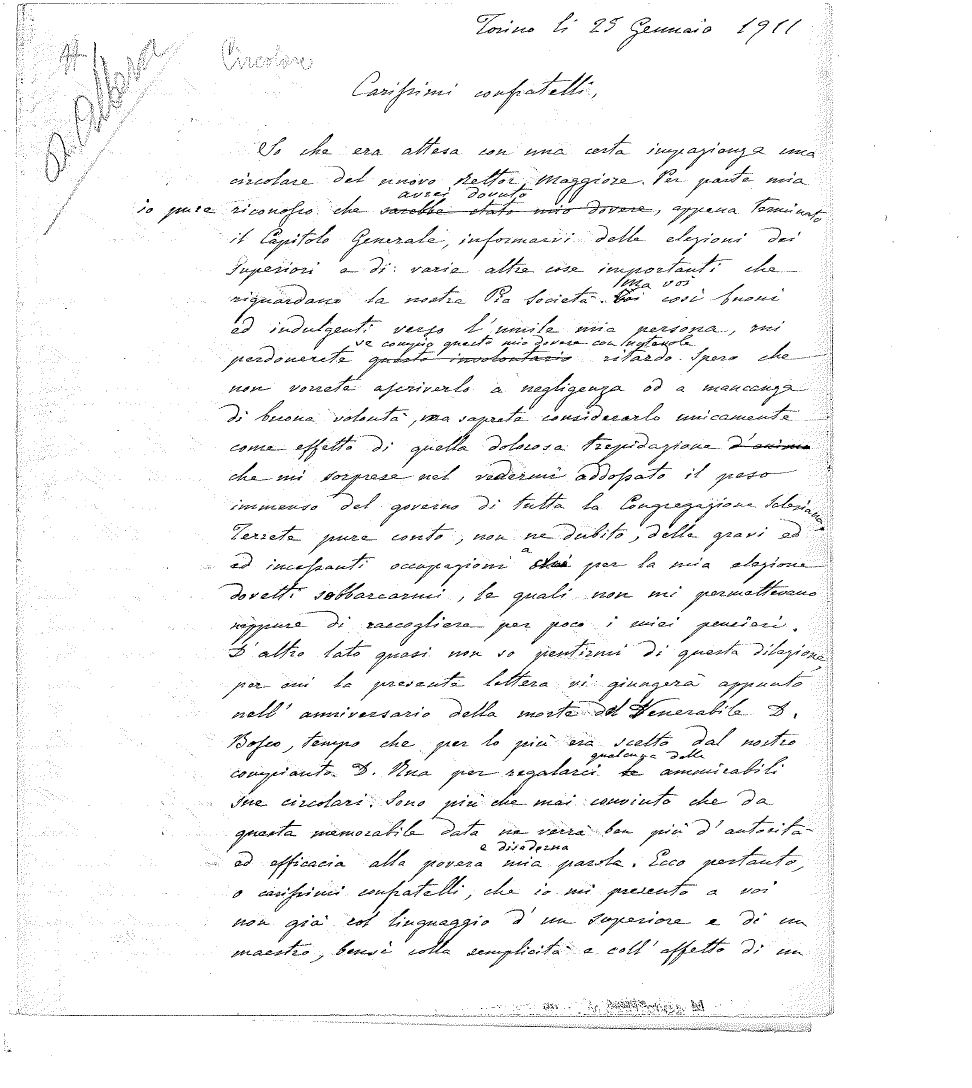 Torino li 25 Gennaio 1911
Circolare
D. Albera
Carissimi confratelli,
So che era attesa con una certa impazienza una
circolare del nuovo Rettor Maggiore. Per parte mia
avrei dovuto
io pure riconosco che sarebbe stato mio dovere, appena terminato
il Capitolo Generale, informarvi delle elezioni dei
Superiori e di varie altre cose importanti che
Ma voi
riguardano la nostra Pia Società. Voi così buoni
ed indulgenti verso l'umile mia persona, mi
se compio questo mio dovere con notevole
perdonerete questo involontario ritardo. Spero che
non vorrete ascriverlo a negligenza od a mancanza
di buona volontà, ma saprete considerarlo unicamente
come effetto di quella dolorosa trepidazione d'animo
che mi sorprese nel vedermi addossato il peso
immenso del governo di tutta la Congregazione Salesiana.
Terrete pure conto, non ne dubito, delle gravi ed
a
ed incessanti occupazioni che per la mia elezione
dovetti sobbarcarmi, le quali non mi permettevano
neppure di raccogliere per poco i miei pensieri.
D'altro lato quasi non so pentirmi di questa dilazione,
per cui la presente lettera vi giungerà appunto
nell'anniversario della morte del Venerabile D.
Bosco, tempo che per lo più era scelto dal nostro
qualcuna delle
compianto D. Rua per regalarci le ammirabili
sue circolari. Sono più che mai convinto che da
questa memorabile data ne verrà ben più d'autorità
e disadorna
ed efficacia alla povera mia parola. Ecco pertanto,
o carissimi confratelli, che io mi presento a voi
non già col linguaggio d'un superiore e di un
maestro, bensì colla semplicità e coll'affetto di un